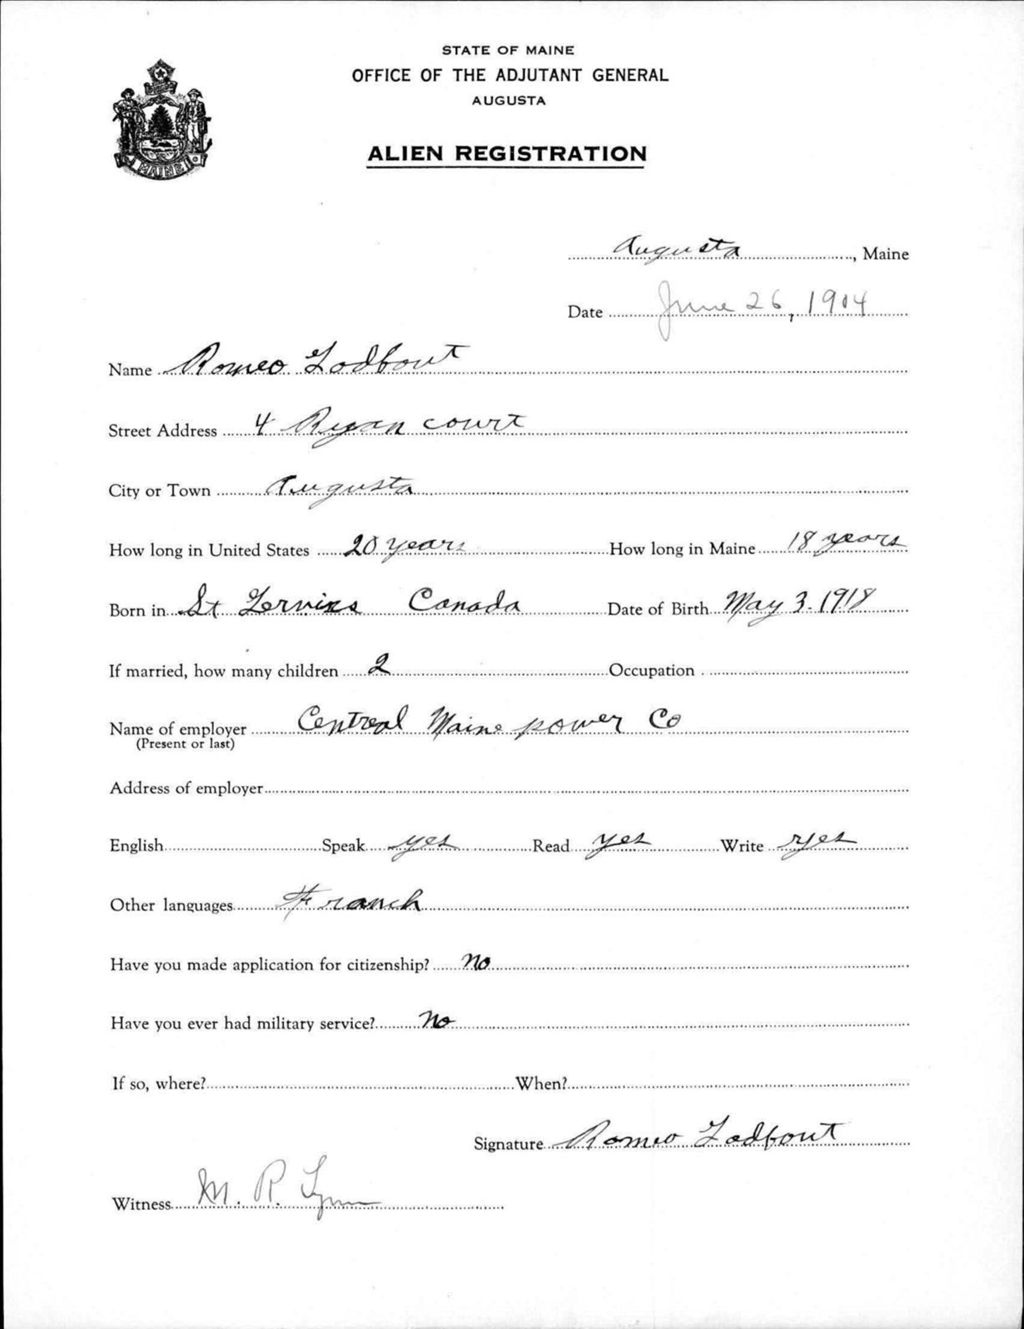 STATE OF MAINE
OFFICE OF THE ADJUTANT GENERAL
AUGUSTA
ALIEN REGISTRATION
MAINE
Augusta, Maine
Date June 26, 1904
Name Romeo Lodbout
Street Address 4 Ryan court
City or Town Augusta
How long in United States 20 years How long in Maine 18 years
Born in St Canada Date of Birth May 3-1918
If married, how many children 2 Occupation
Name of employer Central Maine power Co
(Present or last)
Address of employer
English Speak yes Read yes Write yes
Other languages Franch
Have you made application for citizenship? No
Have you ever had military service? No
If so, where? When?
Signature Romeo Lodbout
Witness M. R. Lynn